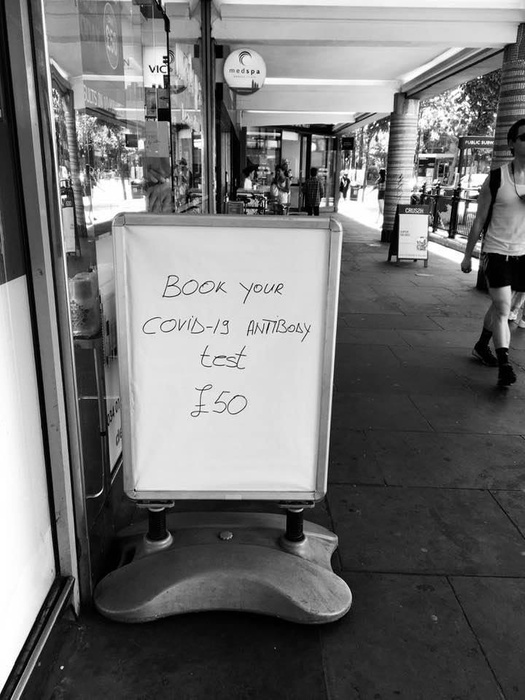 VIC
medspa
PUBLIC SUBW
CRUSSH
BOOK YOUR
COVID-19 ANTIBODY
test
£50